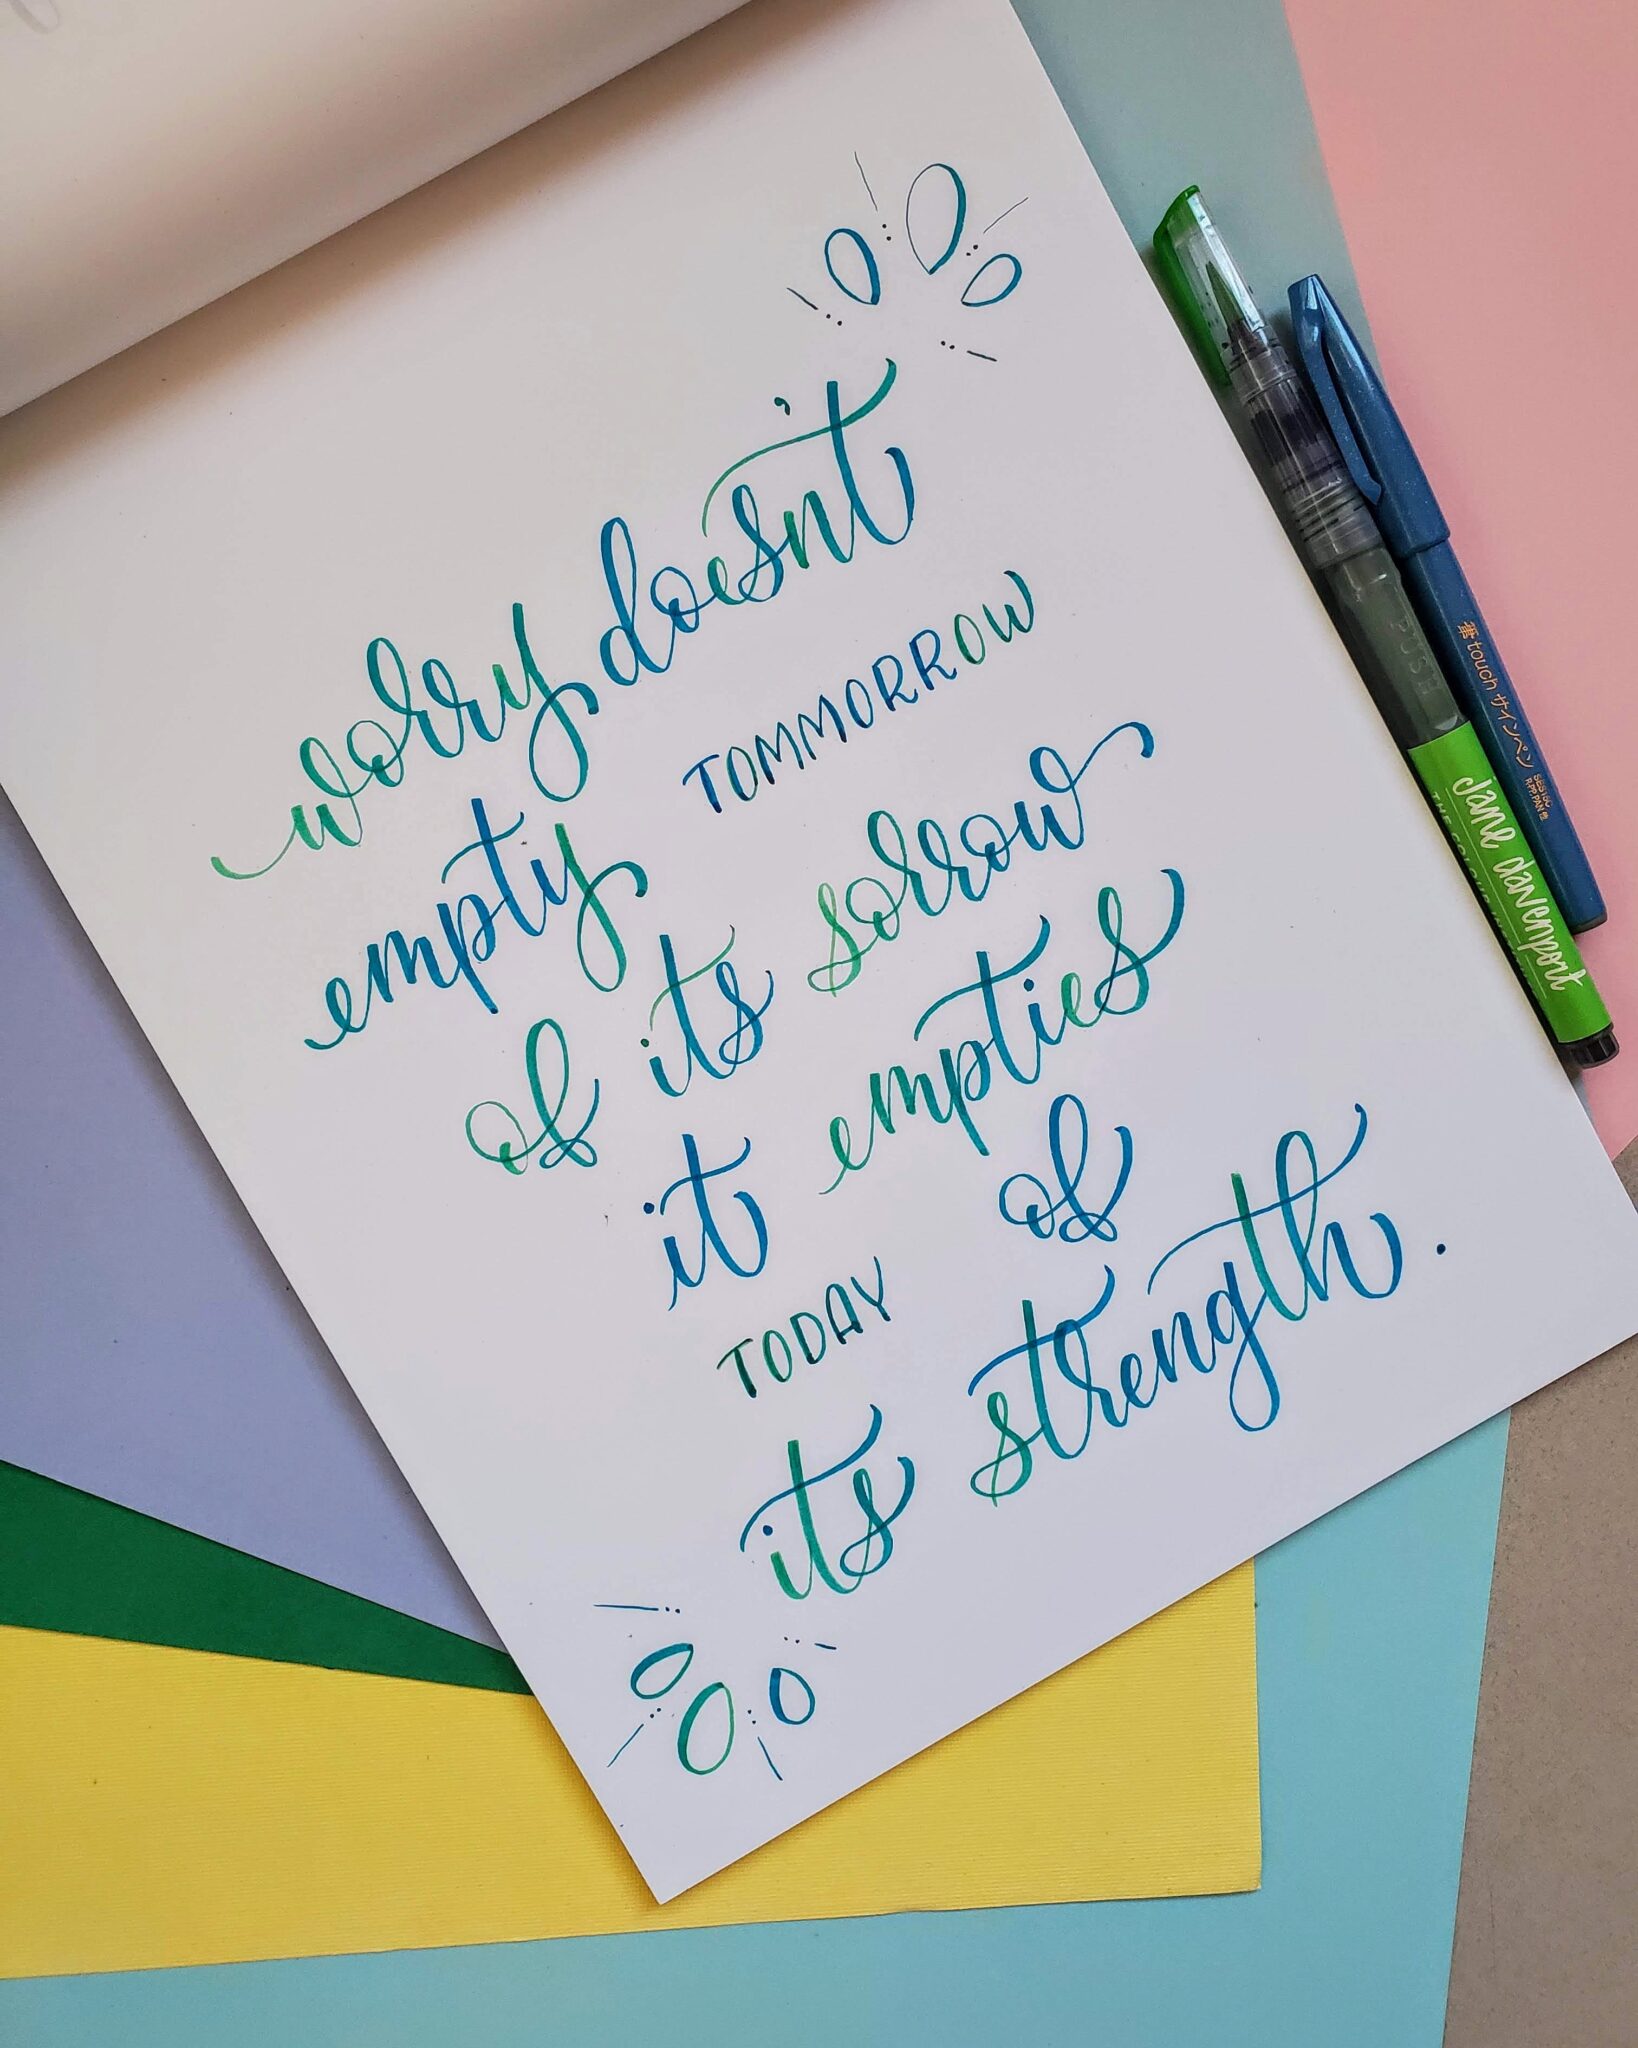 worry doesn't
empty TOMMORROW
of its sorrow
it empties
TODAY of
its strength.
筆touch サインペン
SES15C
PUSH
jane davenport